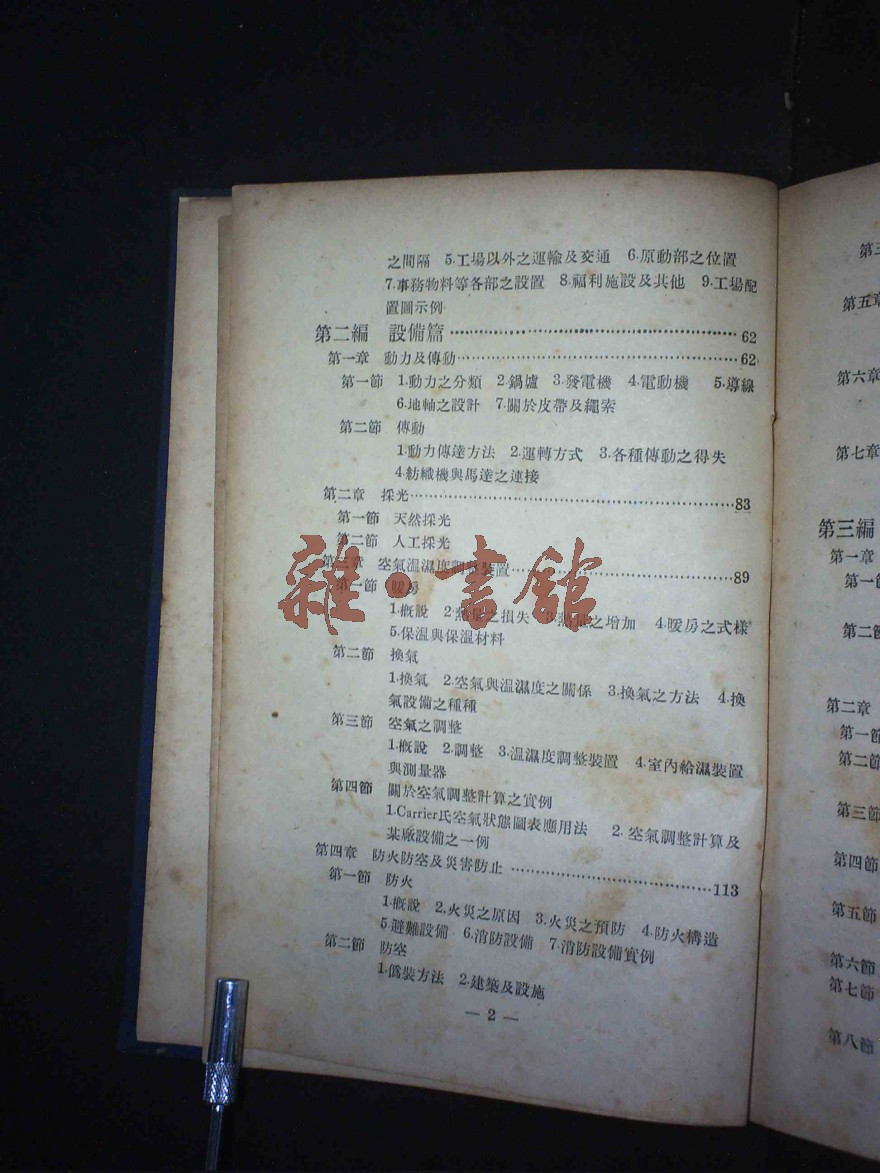 之間隔 5.工場以外之運輸及交通 6.原動部之位置
7.事務物料等各部之設置 8.福利施設及其他 9.工場配
置圖示例
第二編 設備篇……62
第一章 動力及傳動……62
第一節 1.動力之分類 2.鍋爐 3.發電機 4.電動機 5.導線
6.地軸之設計 7.關於皮帶及繩索
第二節 傳動
1.動力傳達方法 2.運轉方式 3.各種傳動之得失
4.紡織機與馬達之連接
第二章 採光……83
第一節 天然採光
第二節 人工採光
第三章 空氣溫濕度調整裝置……89
第一節 暖房
1.概說 2.熱量之損失 3.熱量之增加 4.暖房之式樣
5.保溫與保溫材料
第二節 換氣
1.換氣 2.空氣與溫濕度之關係 3.換氣之方法 4.換
氣設備之種種
第三節 空氣之調整
1.概說 2.調整 3.溫濕度調整裝置 4.室內給濕裝置
與測量器
第四節 關於空氣調整計算之實例
1.Carrier氏空氣狀態圖表應用法 2.空氣調整計算及
某廠設備之一例
第四章 防火防空及災害防止……113
第一節 防火
1.概說 2.火災之原因 3.火災之預防 4.防火構造
5.避難設備 6.消防設備 7.消防設備實例
第二節 防空
1.僞裝方法 2.建築及設施
— 2 —
雜·書館
第三
第五章
第六章
第七章
第三編
第一章
第一節
第二節
第二章
第一節
第二節
第三節
第四節
第五節
第六節
第七節
第八節